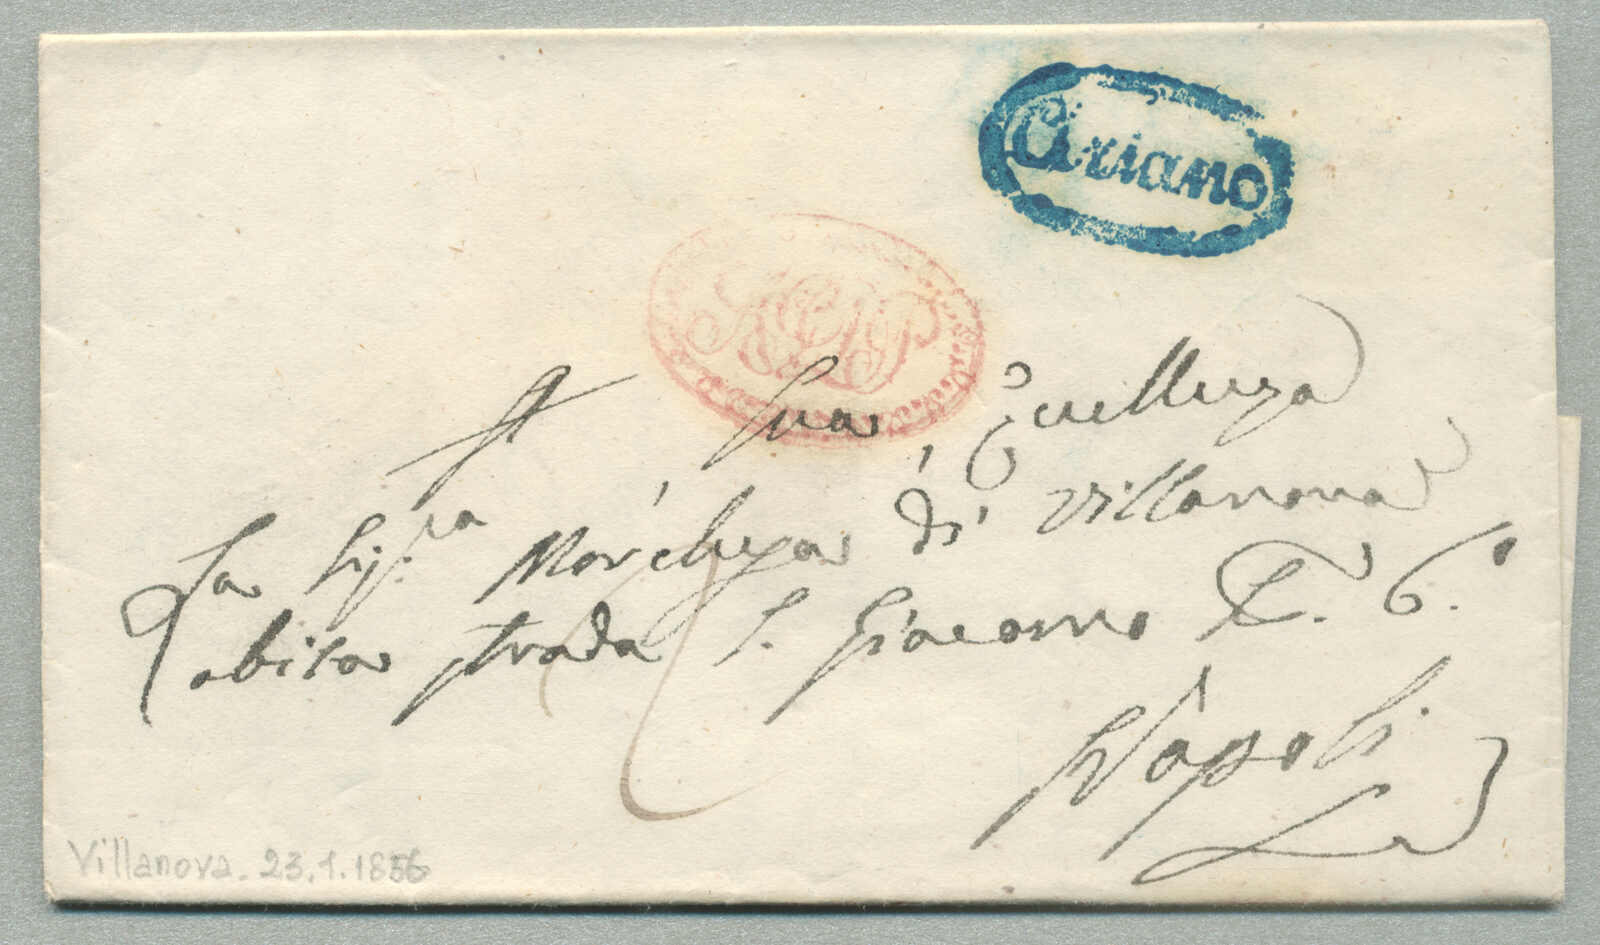 Ariano
A Sua Eccellenza
La Sig.ra Marchesa di Villanova
abita strada S. Giacomo N. 6.°
Napoli
Villanova. 23.1.1856